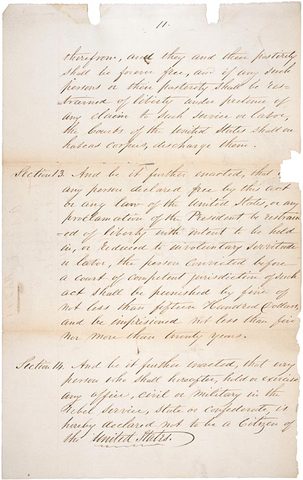 11.
therefrom, and they and their posterity
shall be forever free, and if any such
persons or their posterity shall be res-
trained of liberty under pretence of
any claim to such service or labor,
the Courts of the United States shall on
habeas corpus, discharge them.
Section 13. And be it further enacted, that if
any person declared free by this act
or any law of the United States, or any
proclamation of the President be restrain-
ed of liberty with intent to be held
in, or reduced to involuntary Servitude
or labor, the person convicted before
a court of competent jurisdiction of such
act shall be punished by fine of
not less than fifteen Hundred Dollars
and be imprisoned not less than five
nor more than twenty years.
Section 14. And be it further enacted, that every
person who shall hereafter, hold or exercise
any office, civil or military in the
Rebel Service, State or Confederate, is
hereby declared not to be a Citizen of
the United States.